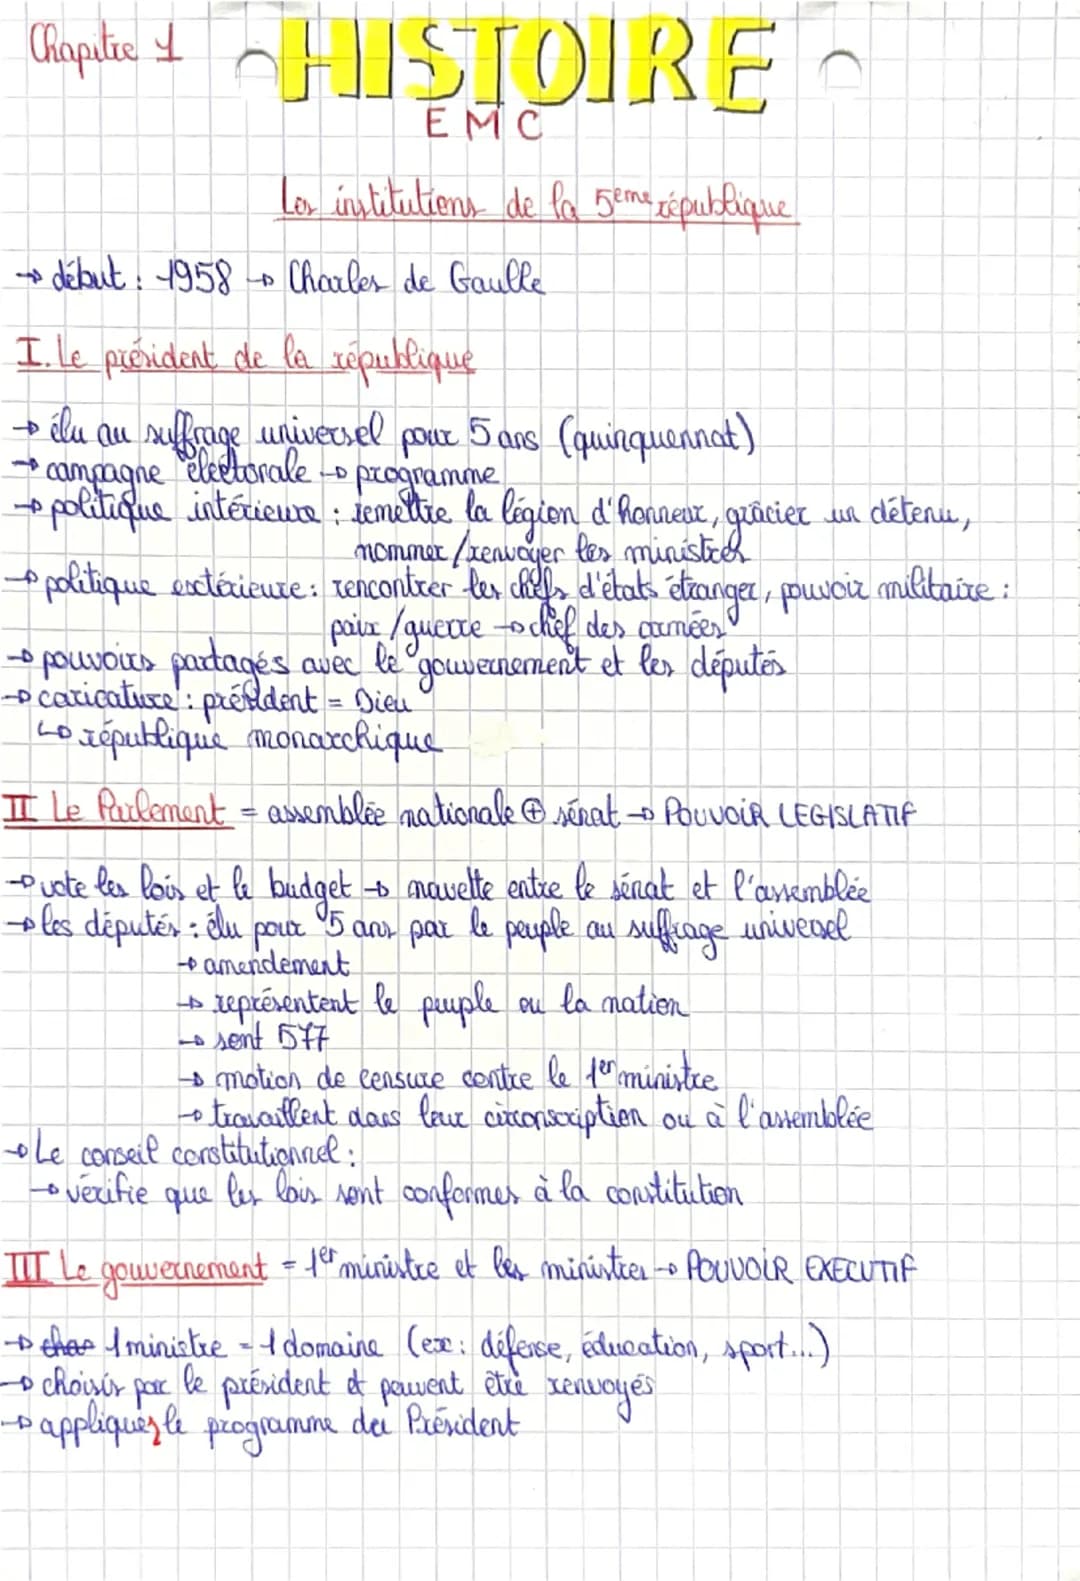 Chapitre 1
HISTOIRE
EMC
Les institutions de la 5eme république
→ début : 1958 → Charles de Gaulle
I. Le président de la république
→ élu au suffrage universel pour 5 ans (quinquennat)
→ campagne électorale → programme
→ politique intérieure : remettre la légion d'honneur, grâcier un détenu,
nommer/renvoyer les ministres
→ politique extérieure : rencontrer les chefs d'états étranger, pouvoir militaire :
paix/guerre → chef des armées
→ pouvoirs partagés avec le gouvernement et les députés
→ caricature : président = Dieu
↳ république monarchique
II Le Parlement = assemblée nationale ⊕ sénat → POUVOIR LEGISLATIF
→ vote les lois et le budget → navette entre le sénat et l'assemblée
→ les députés : élu pour 5 ans par le peuple au suffrage universel
→ amendement
→ représentent le peuple ou la nation
→ sont 577
→ motion de censure contre le 1er ministre
→ travaillent dans leur circonscription ou à l'assemblée
→ Le conseil constitutionnel :
→ vérifie que les lois sont conformes à la constitution
III Le gouvernement = 1er ministre et les ministres → POUVOIR EXECUTIF
→ 1 ministre = 1 domaine (ex : défense, éducation, sport...)
→ choisis par le président et peuvent être renvoyés
→ appliquez le programme du Président